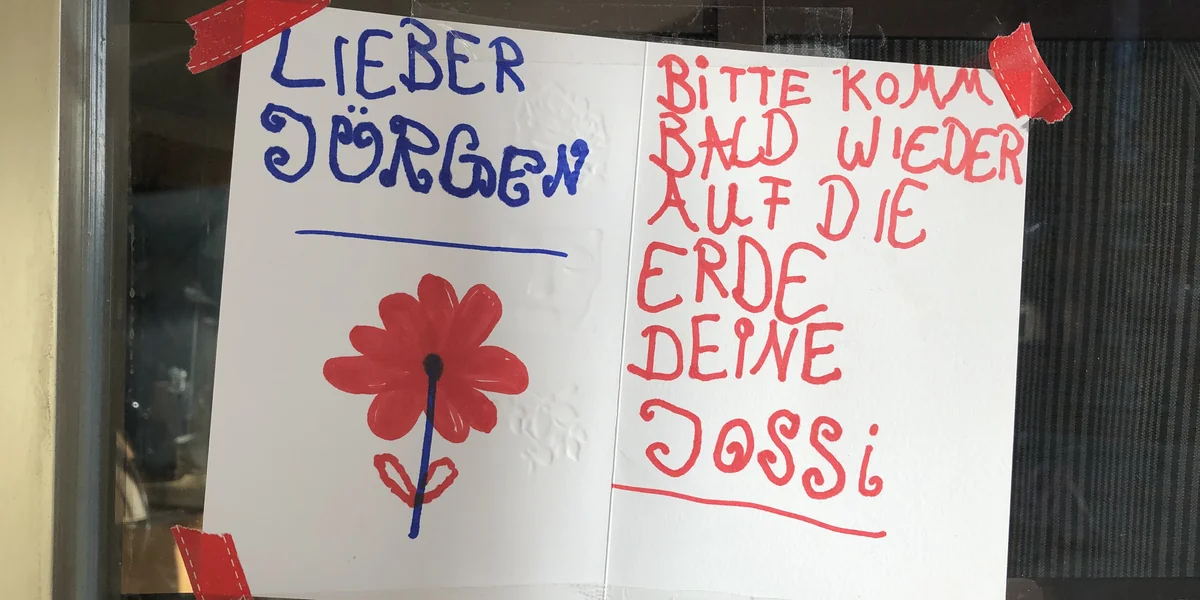 LIEBER
JÖRGEN
BiTTE KOMM
BALD WIEDER
AUF DIE
ERDE
DEiNE
JOSSi